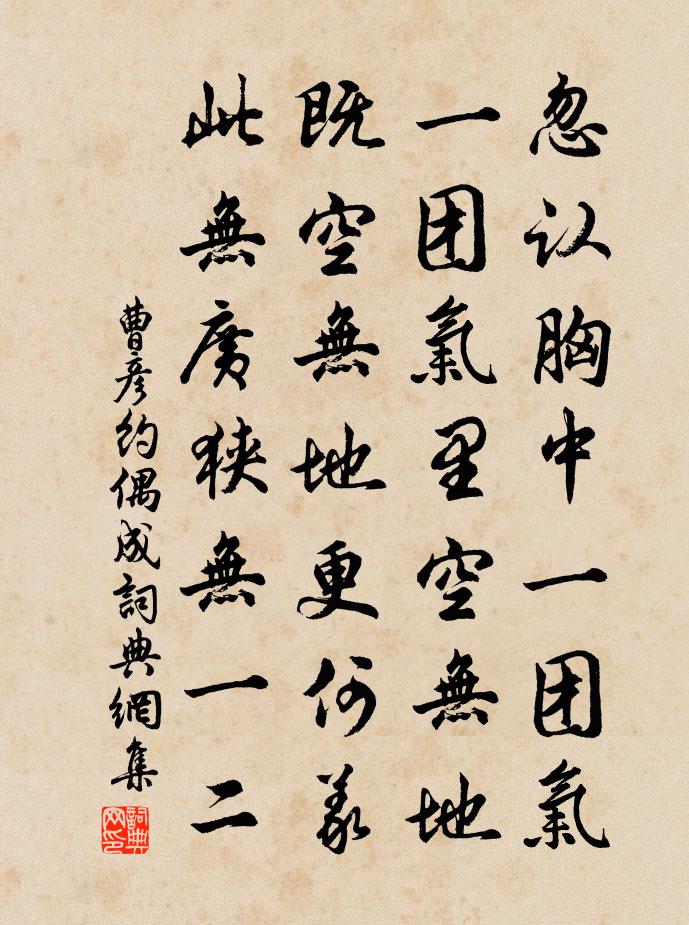 忽认胸中一团氣
一团氣里空無地
既空無地更何義
此無廣狹無一二
曹彦约偶成詞典網集
詞典网印